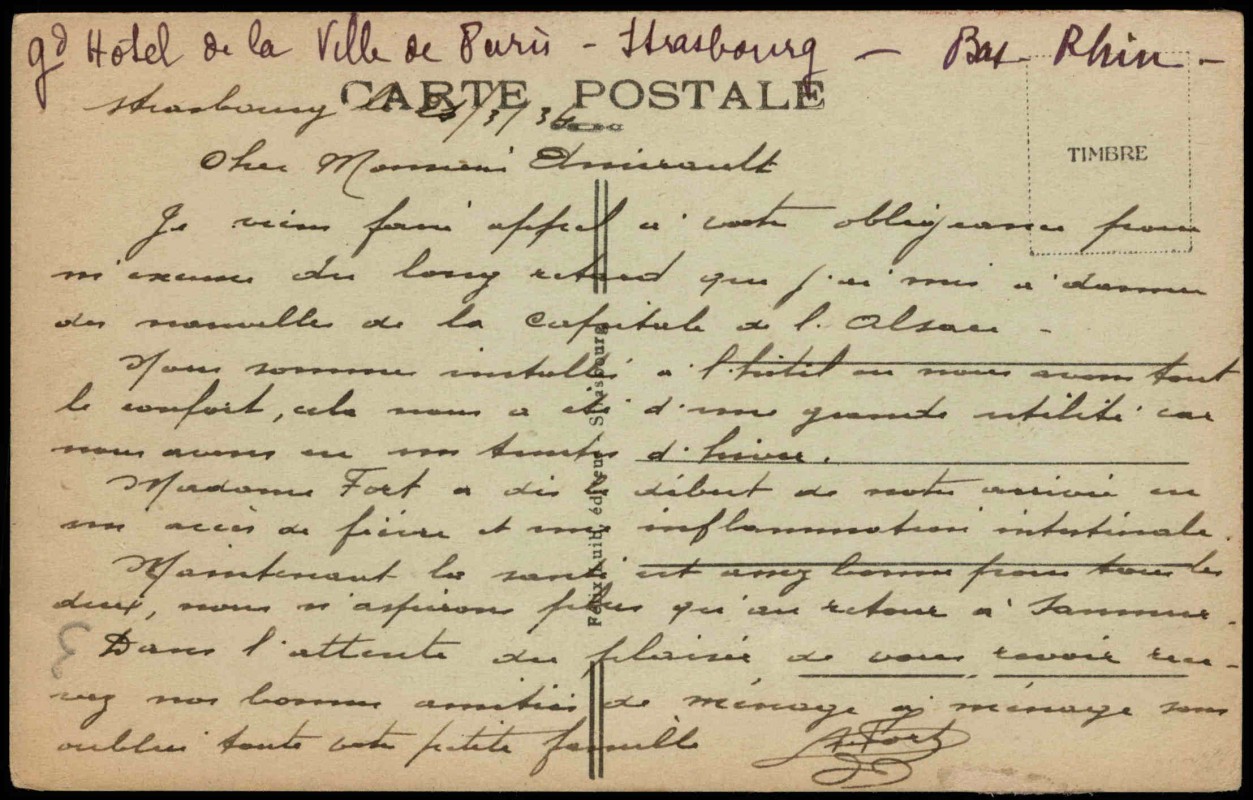 gd Hôtel de la Ville de Paris - Strasbourg - Bas-Rhin -
CARTE POSTALE
Strasbourg le /3/36
TIMBRE
Cher Monsieur Amirault
Je viens faire appel à votre obligeance pour
m'excuser du long retard que j'ai mis à donner
des nouvelles de la Capitale de l'Alsace -
Nous sommes installés à l'hôtel où nous avons tout
le confort, cela nous a été d'une grande utilité car
nous avons eu un temps d'hiver.
Madame Fort a dès le début de notre arrivée eu
un accès de fièvre et une inflammation intestinale.
Maintenant la santé est assez bonne pour tous les
deux, nous n'aspirons plus qu'au retour à Saumur.
Dans l'attente du plaisir de vous revoir rece-
vez nos bonnes amitiés de ménage à ménage sans
oublier toute votre petite famille
A. Fort
éditeur, Strasbourg